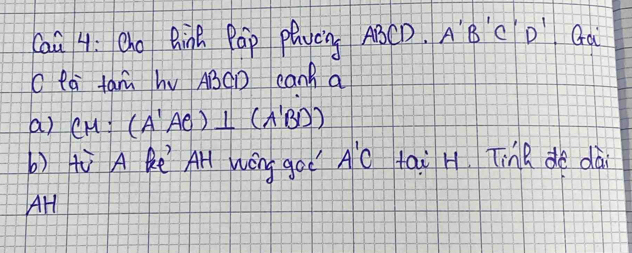 Câu 4: Cho hình lập phương ABCD. A'B'C'D'. Gọi
O là tâm hv ABCD cạnh a
a) CM: (A'AC) ⊥ (A'BD)
b) từ A kẻ AH vuông góc A'C tại H. Tính độ dài
AH